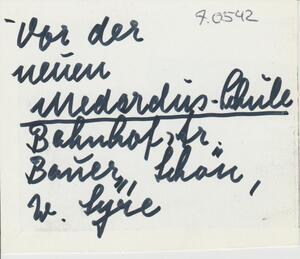 7.0542
Vor der
neuen
Medardus-Schule
Bahnhofstr.
Bauer, Schön,
W. Syre